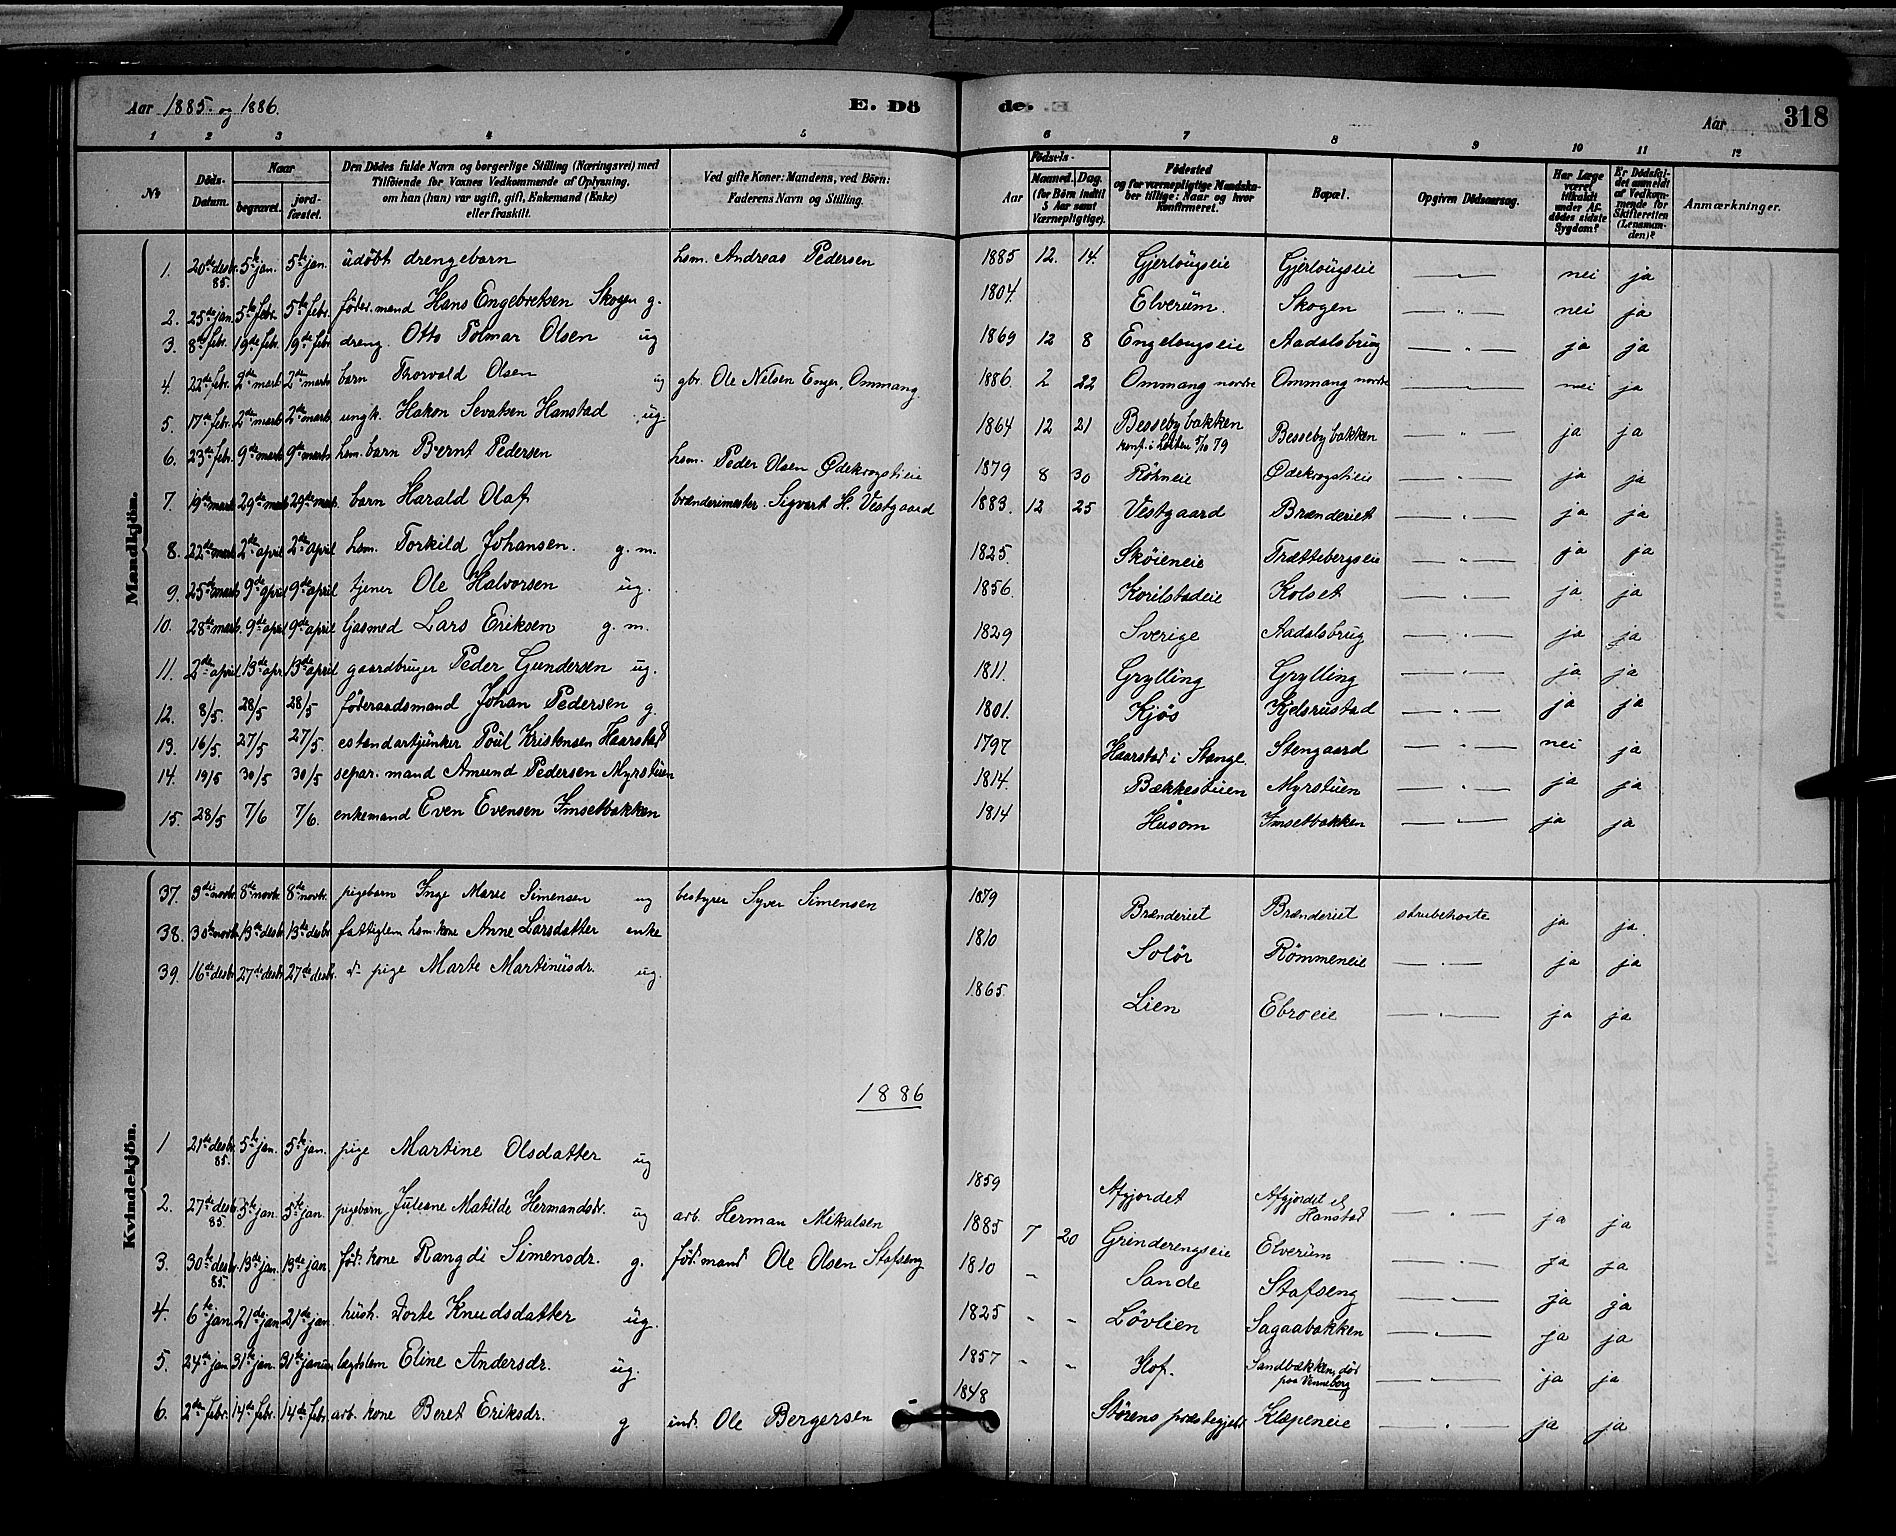 Aar 1885 og 1886. E. Dö de. Aar 318
1 2 3 4 5 6 7 8 9 10 11 12
No Döds-Datum. Naar begravet. jordfæstet. Den Dödes fulde Navn og borgerlige Stilling (Næringsvei) med Tilföiende for Voxnes Vedkommende af Oplysning, om han (hun) var ugift, gift, Enkemand (Enke) eller fraskilt. Ved gifte Koner: Mandens, ved Börn: Faderens Navn og Stilling. Aar Födsels- Maaned. Dag. (for Börn indtil 5 Aar samt Værnepligtige). Födested og for værnepligtige Mandskaber tillige: Naar og hvor konfirmeret. Bopæl. Opgiven Dödsaarsag. Har Læge været tilkaldt under Afdödes sidste Sygdom? Er Dödsfaldet anmeldt af Vedkommende for Skifteretten (Lensmanden)? Anmærkninger.
Mandkjön.
1. 20de desbr. 85. 5te jan. 5te jan. udöbt drengebarn hsm. Andreas Pedersen 1885 12. 14. Gjerlougseie Gjerlougseie — " — nei ja
2. 25de jan. 5te febr. 5te febr. föder. mand Hans Engebretsen Skogen g. 1804. Elverum. Skogen — " — nei ja
3. 8de febr. 19de febr. 19de febr. dreng. Otto Polmar Olsen ug 1869 12 8 Engelougseie Aadalsbrug — " — ja ja
4. 22de febr. 2de marts 2de marts barn Thorvald Olsen ug gbr. Ole Nilsen Enger, Ommang 1886. 2 22 Ommang nordre Ommang nordre — " — nei ja
5. 17de febr. 2de marts 2de marts ungk. Hakon Sevatsen Hanstad ug. 1864 12 21 Bessebybakken konf. i Löiten 5/10 79 Bessebybakken — " — ja ja
6. 23de febr. 9de marts 9de marts hsm. barn Bernt Pedersen hsm. Peder Olsen Ödekrogstieie 1879 8 30 Röhneie Ödekrogstieie — " — ja ja
7. 19de marts 29de marts 29de marts. barn Harald Olaf brænderimester. Sigvart H. Vestgaard 1883. 12 25 Vestgaard Brænderiet — " — ja ja
8. 22de marts 2de april 2de april hsm. Torkild Johansen. g. m. 1825. Sköieneie Trættebergseie — " — ja ja
9. 25de marts 9de april 9de april tjener Ole Halvorsen ug. 1856. Korilstadeie Kolset — " — ja ja
10. 28de marts. 9de april 9de april Gasmed Lars Eriksen g. m. 1829 Sverige Aadalsbrug — " — ja ja
11. 2de april 13de apr 13de april gaardbruger Peder Gundersen ug. 1811. Grylling Grylling — " — ja ja
12. 8/5. 28/5 28/5 föderaadsmand Johan Pedersen g. 1801. Kjös Kjelsrustad — " — ja ja
13. 16/5. 27/5 27/5. estandartjunker Poul Kristensen Haarstad 1797 Haarstad i Stange Stengaard — " — nei ja
14. 19/5 30/5 30/5 separ. mand Amund Pedersen Myrstuen 1814. Bækkestuen Myrstuen — " — ja ja
15. 28/5 7/6 7/6. enkemand Even Evensen Imsetbakken 1814 Husom Imsetbakken — " — ja ja
Kvindekjön.
37. 3die novbr. 8de novbr. 8de novbr. pigebarn Inge Marie Simensen ug bestyrer Syver Simensen 1879 Brænderiet Brænderiet strubehoste ja ja.
38. 30te novbr 13de desbr 13de desbr fattiglem hsm. kone Anne Larsdatter enke 1810 Solör Römmeneie — " — ja ja
39. 16de desbr. 27de desbr 27de desbr. do pige Marte Martinusdr. ug. 1865. Lien Ebroeie — " — ja ja
1886
1 21de desbr. 85. 5te jan. 5te jan. pige Martine Olsdatter ug 1859 Afgjordet Afgjordet et. Hanstad — " — ja ja
2. 27de desbr. 85 5te jan. 5te jan. pigebarn Juliane Matilde Hermandsdr. ug arb. Herman Mikalsen 1885 7 20 Grinderengseie Elverum — " — ja ja
3. 30te desbr 85. 13de jan. 13de jan. föd. kone Rangdi Simensdr. g. föd. mand Ole Olsen Stafseng 1810 - Sande Stafseng — " — ja ja
4. 6te jan. 21de jan 21de jan. hush. Dorte Knudsdatter ug. 1825 - - Lövlien Sagaabakken — " — ja ja
5. 24de jan 31te jan. 31te januar lægdslem Eline Andersdr. ug. 1857 - - Hof. Sandbækken, död paa Vinneberg — " — ja ja
6. 2de febr. 14de febr. 14de febr. arb. kone Beret Eriksdr. g ind. Ole Bergersen 1848 Störens præstegjeld Klæpeneie — " — ja ja